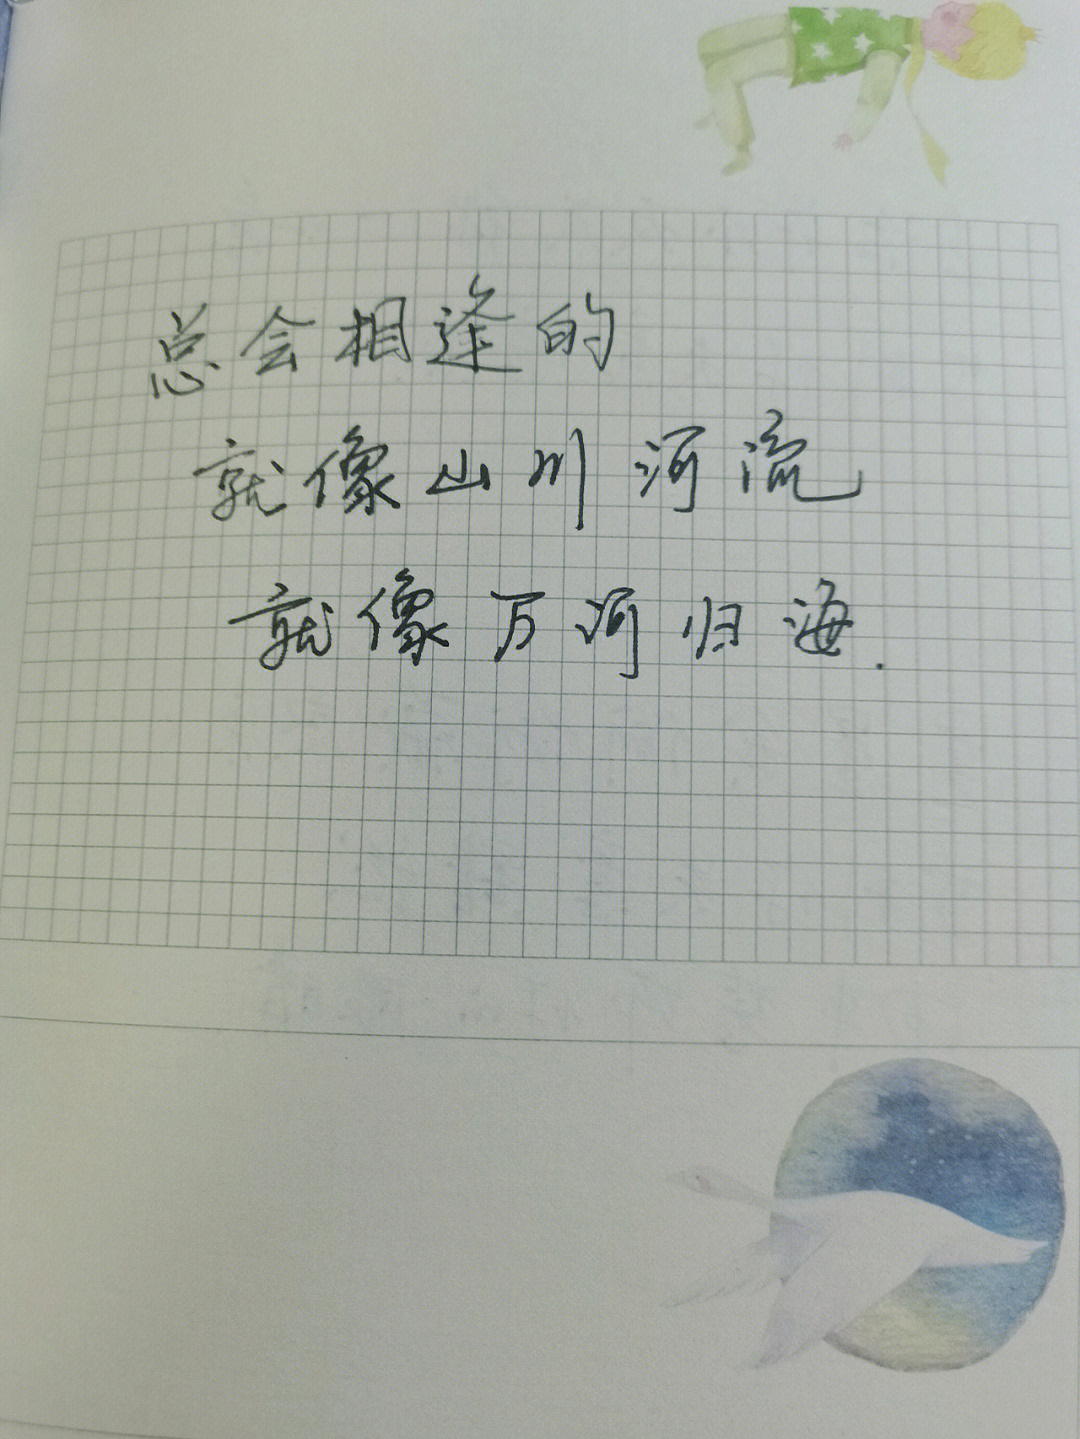 总会相逢的
就像山川河流
就像万河归海.